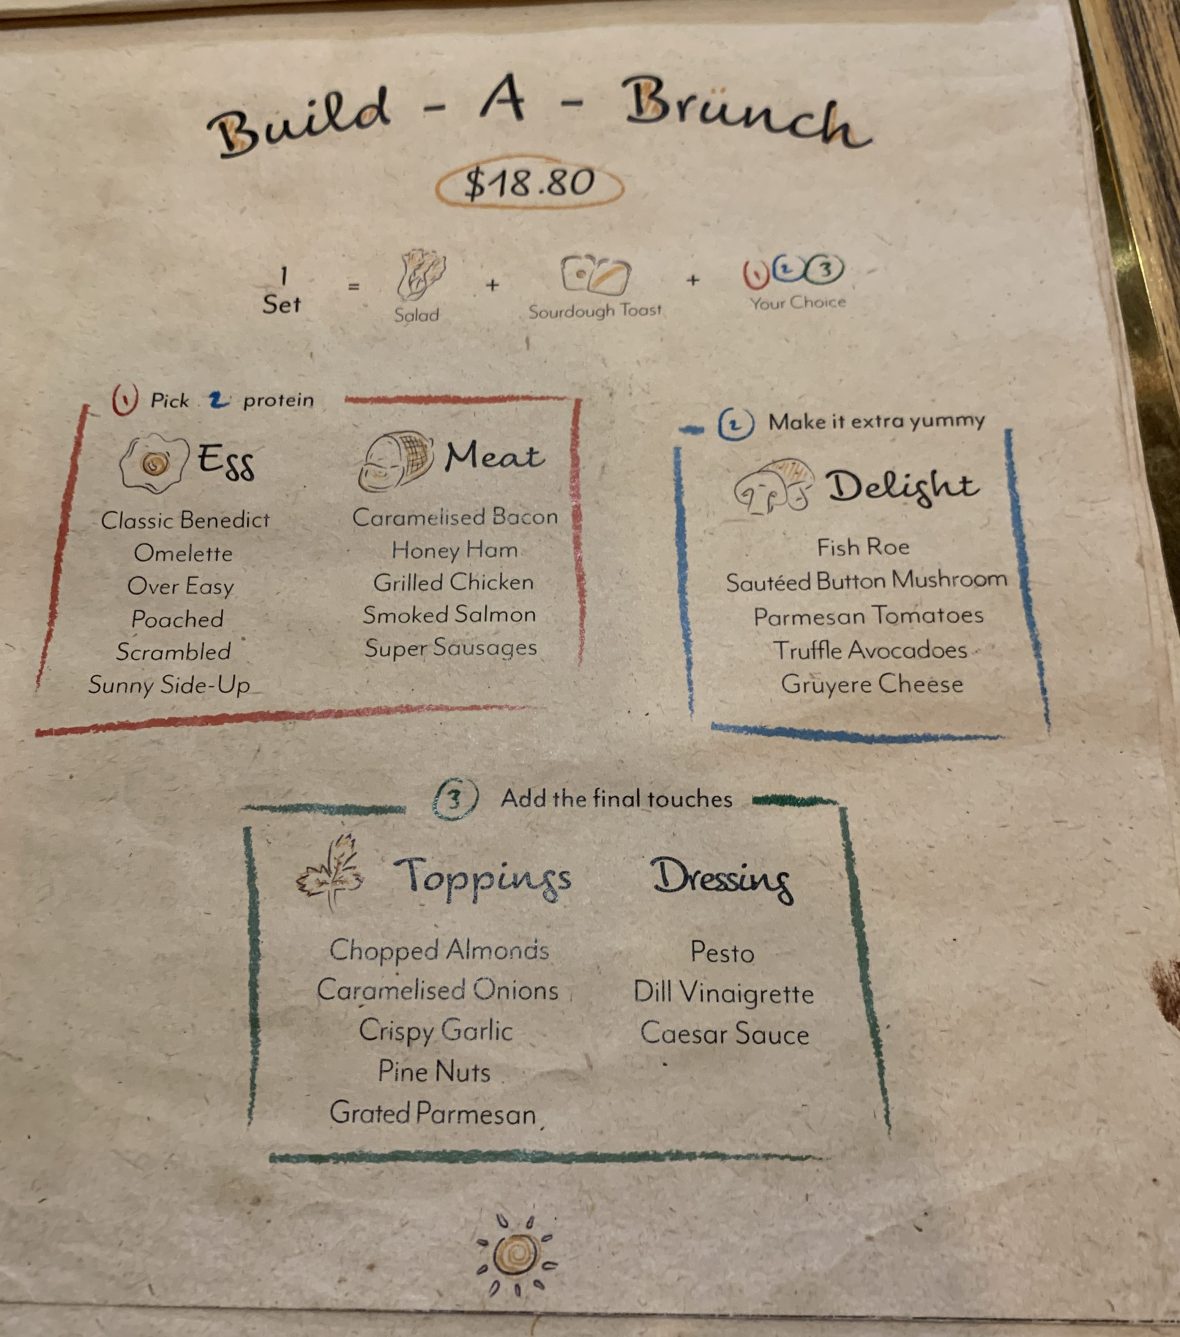 Build - A - Brünch
$18.80
1 Set = Salad + Sourdough Toast + 1 2 3 Your Choice
1 Pick 2 protein
Egg
Classic Benedict
Omelette
Over Easy
Poached
Scrambled
Sunny Side-Up
Meat
Caramelised Bacon
Honey Ham
Grilled Chicken
Smoked Salmon
Super Sausages
2 Make it extra yummy
Delight
Fish Roe
Sautéed Button Mushroom
Parmesan Tomatoes
Truffle Avocadoes
Gruyere Cheese
3 Add the final touches
Toppings
Chopped Almonds
Caramelised Onions
Crispy Garlic
Pine Nuts
Grated Parmesan
Dressing
Pesto
Dill Vinaigrette
Caesar Sauce